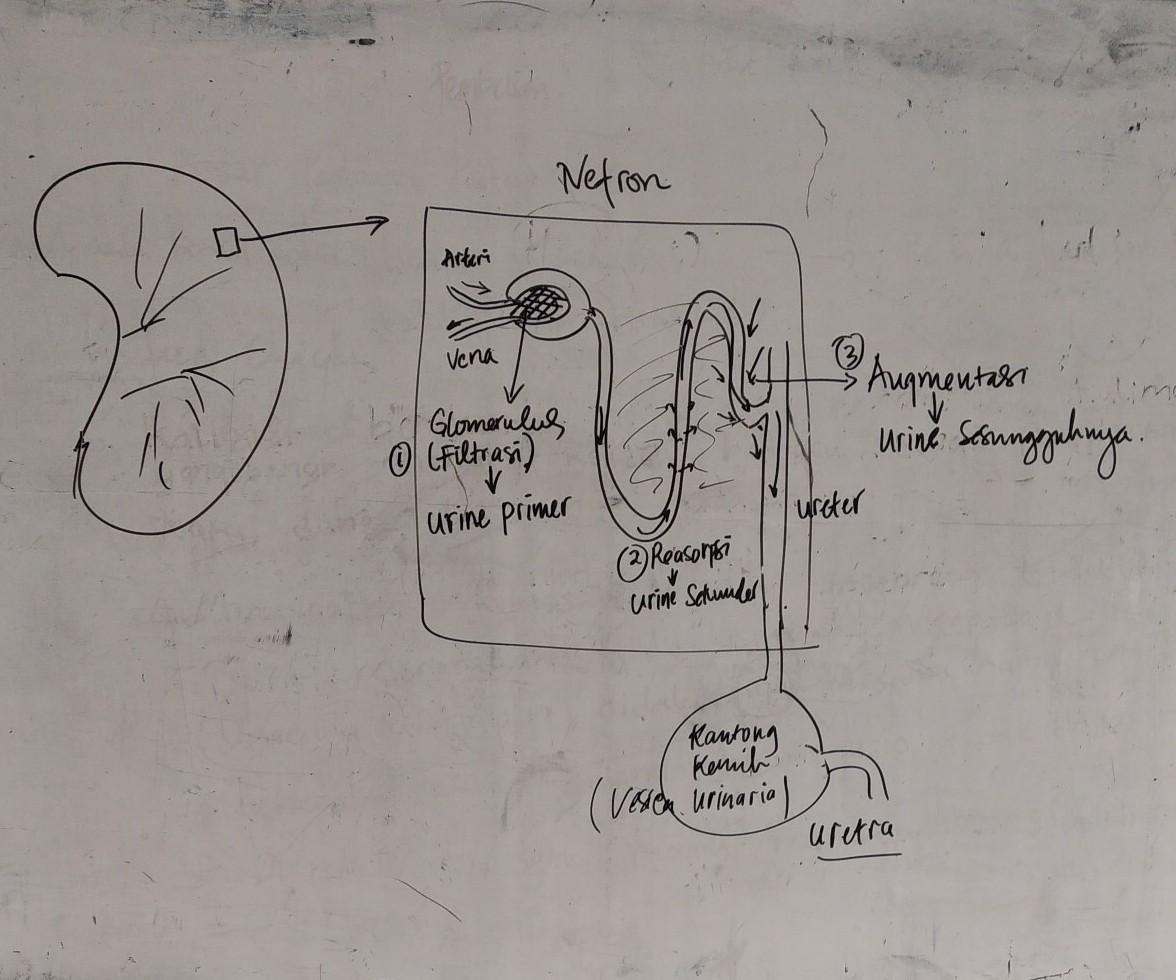 Nefron
Arteri
Vena
Glomerulus
① (Filtrasi)
urine primer
② Reasorpsi
urine Sekunder
③ Augmentasi
urine Sesungguhnya.
ureter
Kantong
Kemih
(Vesica urinaria)
uretra